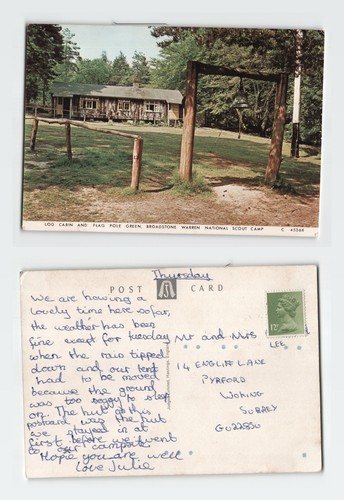 LOG CABIN AND FLAG POLE GREEN, BROADSTONE WARREN NATIONAL SCOUT CAMP.
C 4556R
Thursday
POST CARD
We are having a
lovely time here so far,
the weather has been
fine exept for tuesday
when the rain tipped
down and our tent
had to be moved
because the ground
was too soggy to sleep
on. The hut of this
postcard was the hut
we stayed in at
first before we went
to our campsite
Hope you are well
Love Julie
Mr and Mrs
LEE
14 ENGLIFF LANE
PYRFORD
WOKING
SURREY
GU228SU
12